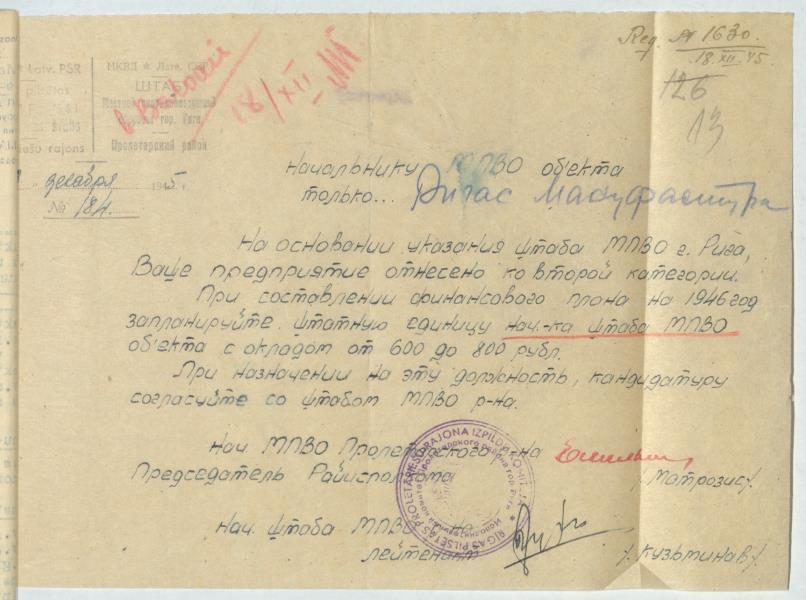 Reg. № 1630
18.XII.45
126
13
Latv. PSR
rajons
НКВД ★ Латв. ССР
ШТАБ
гор. Рига
Пролетарский район
18/XII
декабря 1945 г.
№ 184
Начальнику МПВО объекта
только... Ригас Мануфактура
На основании указания штаба МПВО г. Рига,
Ваше предприятие отнесено ко второй категории.
При составлении финансового плана на 1946 год
запланируйте штатную единицу нач-ка штаба МПВО
объекта с окладом от 600 до 800 рубл.
При назначении на эту должность, кандидатуру
согласуйте со штабом МПВО р-на.
Нач. МПВО Пролетарского р-на
Председатель Райисполкома /Матрозис/.
Нач. штаба МПВО
лейтенант /Кузьминав/.
RIGAS PILSETAS PROLETARIESU RAJONA IZPILDKOMITEJA